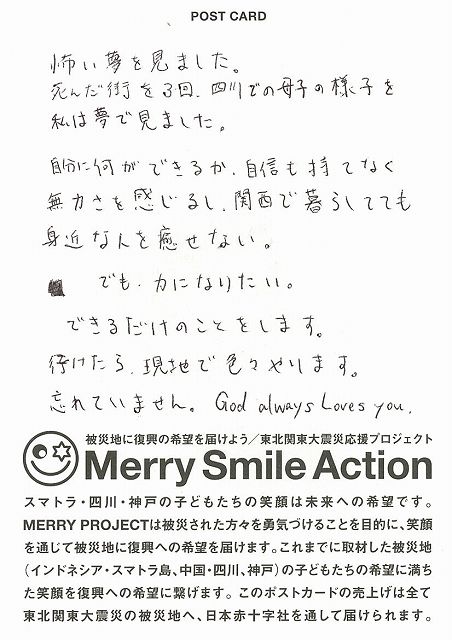 POST CARD
怖い夢を見ました。
死んだ街を3回、四川での母子の様子を
私は夢で見ました。
自分に何ができるか、自信も持てなく
無力さを感じるし、関西で暮らしてても
身近な人を癒せない。
でも、力になりたい。
できるだけのことをします。
行けたら、現地で色々やります。
忘れていません。God always Loves you.
被災地に復興の希望を届けよう／東北関東大震災応援プロジェクト
Merry Smile Action
スマトラ・四川・神戸の子どもたちの笑顔は未来への希望です。
MERRY PROJECTは被災された方々を勇気づけることを目的に、笑顔
を通じて被災地に復興への希望を届けます。これまでに取材した被災地
（インドネシア・スマトラ島、中国・四川、神戸）の子どもたちの希望に満ち
た笑顔を復興への希望に繋げます。このポストカードの売上げは全て
東北関東大震災の被災地へ、日本赤十字社を通して届けられます。